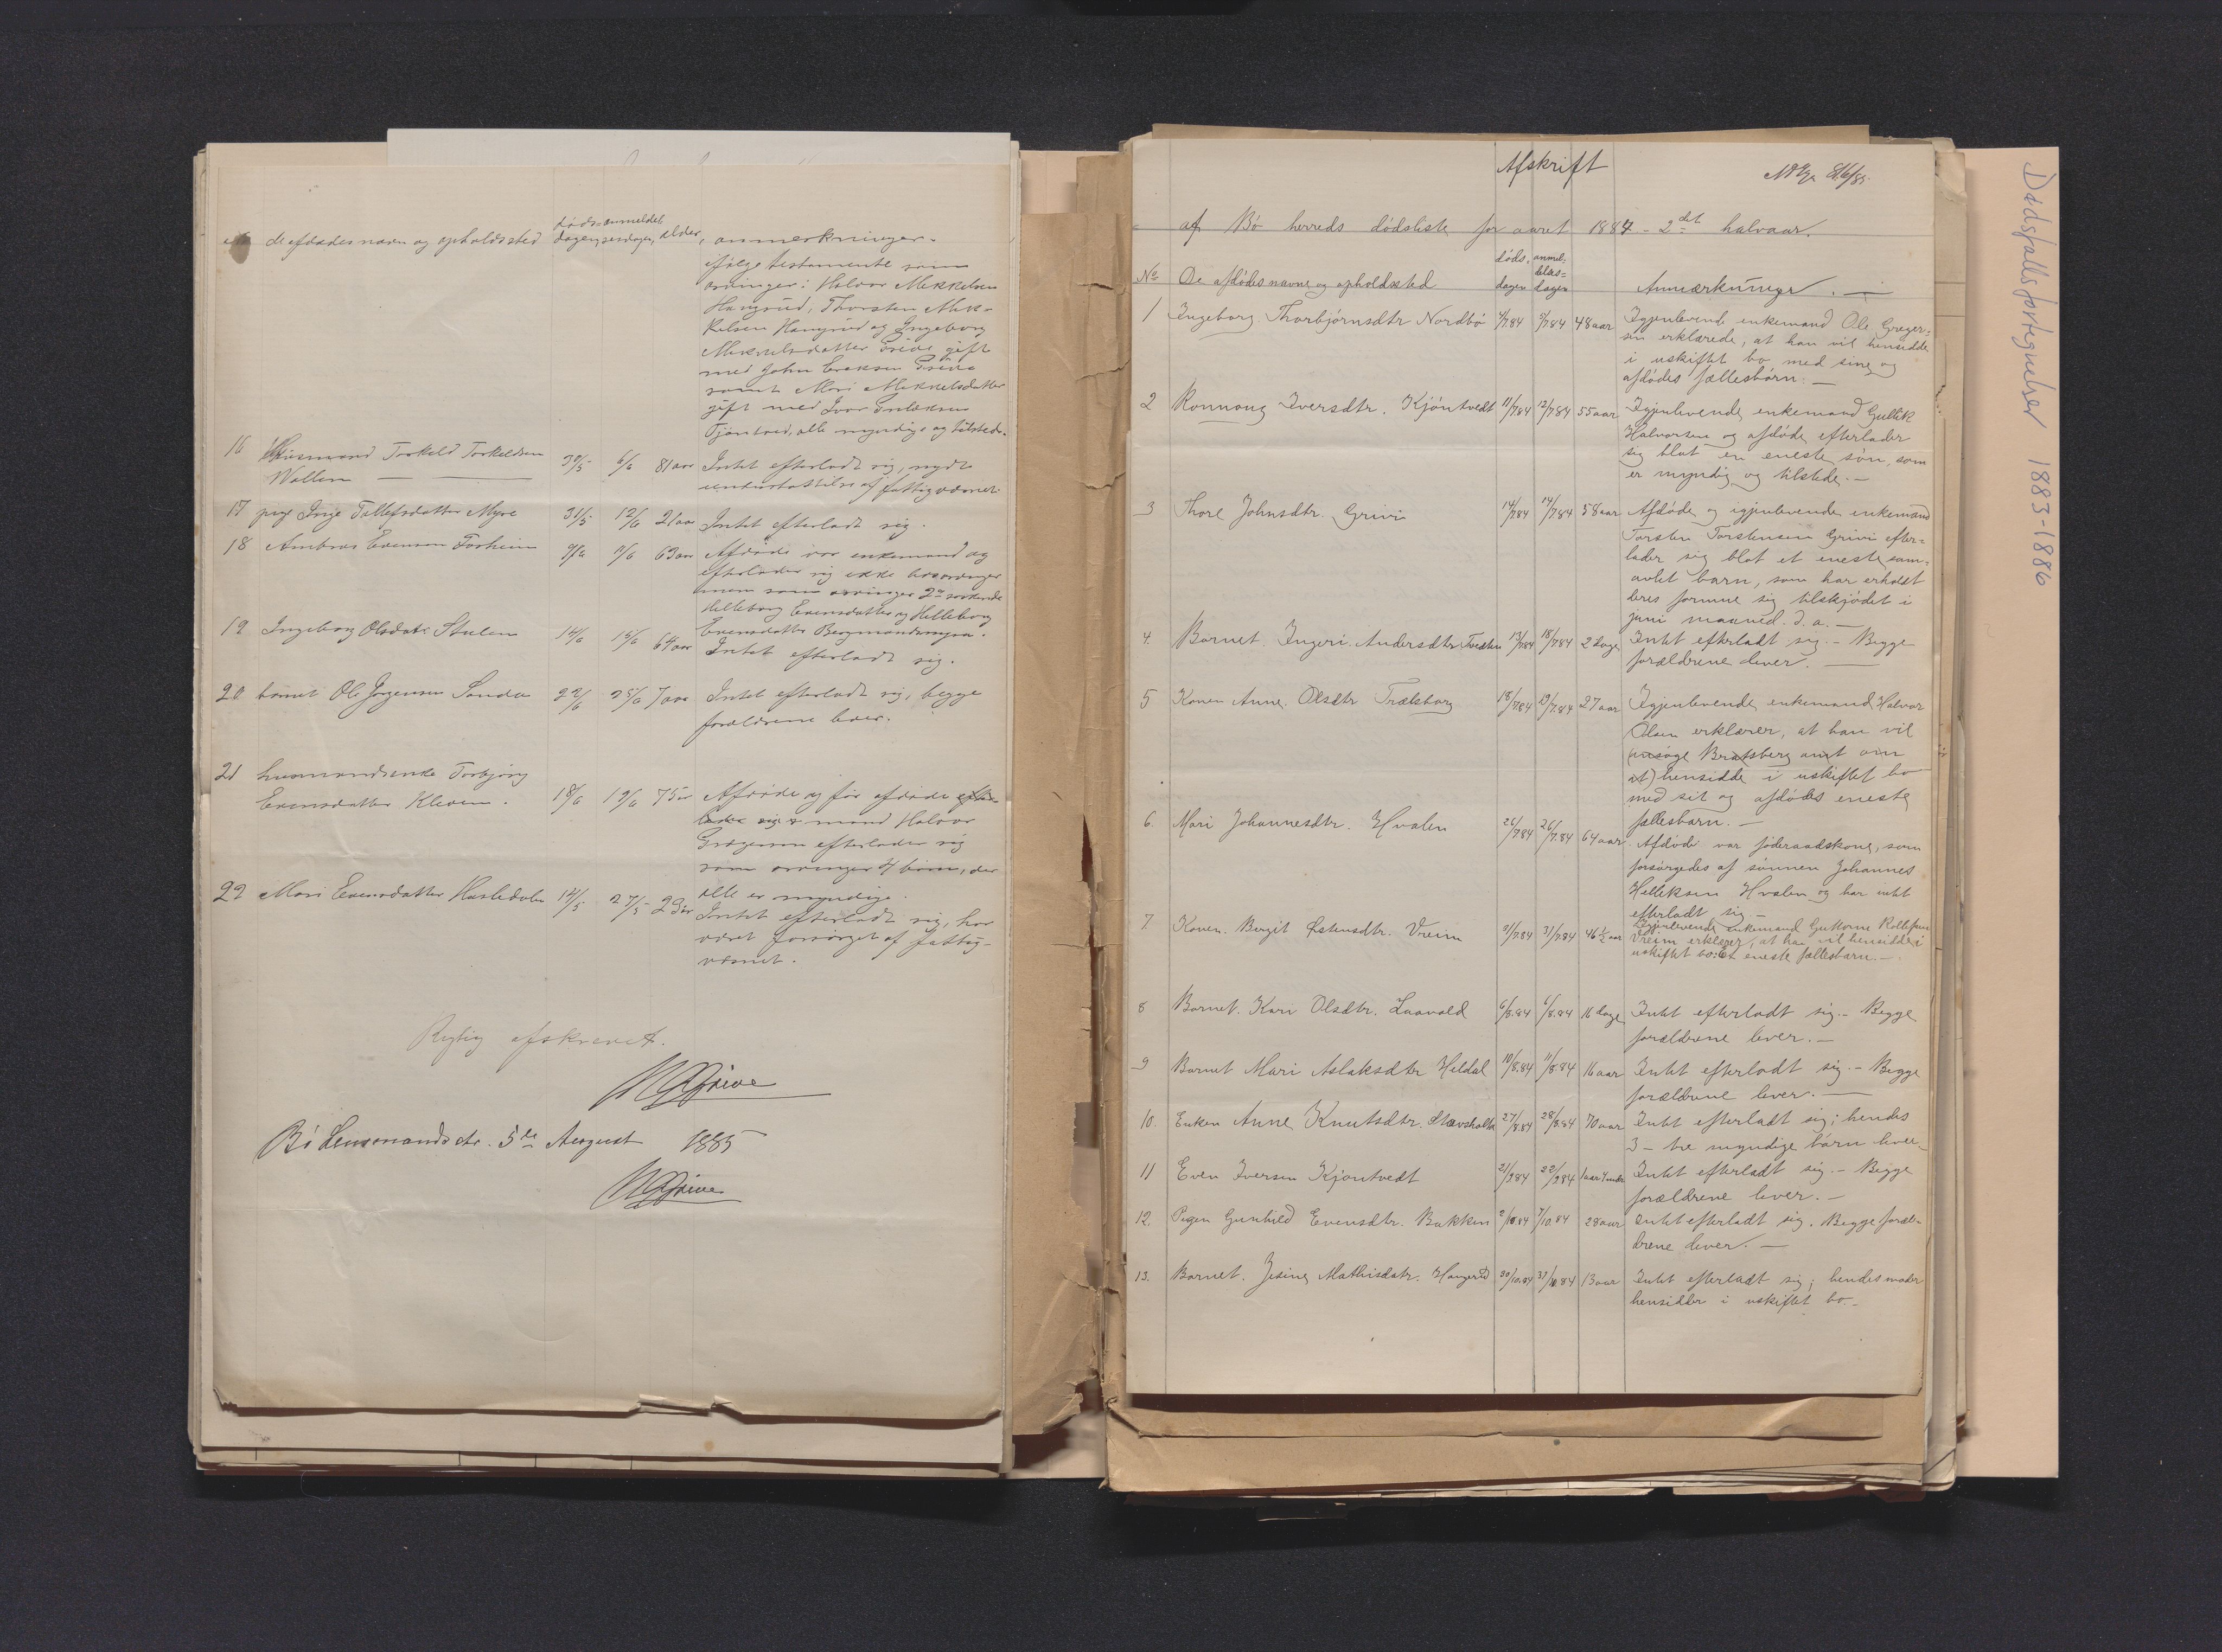 de afdødes navn og opholdssted døds- dagen, anmeldel- sesdagen, alder, anmerkninger.
følge testamente som
arvinger: Halvor Mekkelsen
Haugrud, Thorsten Mek-
kelsen Haugrud og Ingeborg
Mekkelsdatter gift
med John Eriksen
samt Mari Mekkelsdatter
gift med Ivar
alle myndige og tilstede.
16 Husmand Torkeld Torkeldsen 30/5 6/6 81 aar Intet efterladt sig, nydt
Wollen — understøttelse af fattigvæsnet.
17 pige Inge Tallefsdatter Myre 31/5 12/6 21 aar Intet efterladt sig.
18 Ambros Evensen Forheim 9/6 63 aar Afdøde var enkemand og
efterlader sig ikke livsarvinger
men som arvinger 2de søskende
Helleborg Evensdatter og Helleborg
Evensdatter Bergmandsmyra.
19 Ingeborg Olsdatr Stulen 14/6 15/6 64 aar Intet efterladt sig.
20 barnet Ole Jørgensen Sanda 22/6 25/6 7 aar Intet efterladt sig, begge
forældrene lever.
21 husmandsenke Torbjørg
Evensdatter Kleven. 18/6 19/6 75 år Afdøde og før afdøde efter-
lader sig mand Halvor
Gregersen efterlader sig
som arvinger 4 børn, der
alle er myndige.
22 Mari Evensdatter Hasledalen 14/5 27/5 29 år Intet efterladt sig, har
været forsørget af fattig-
væsnet.
Rigtig afskrevet.
Bø Lensmandsctr. 5te August 1885
Afskrift
af Bø herreds dødsliste for aaret 1884 - 2det halvaar.
No De afdødes navne og opholdssted døds- dagen anmel- delses- dagen Anmærkninger. —
1 Ingeborg Thorbjørnsdtr Nordbø 4/7.84 5/7.84 48 aar Igjenlevende enkemand Ole Greger-
sen erklærede, at han vil hensidde
i uskiftet bo med sine og
afdødes fællesbørn. —
2 Ronnoug Iversdtr. Kjøntvedt 11/7.84 12/7.84 55 aar Igjenlevende enkemand Gullik
Halvorsen og afdøde efterlader
sig blot en eneste søn, som
er myndig og tilstede. —
3 Thore Johnsdtr. Grivi 14/7.84 14/7.84 58 aar Afdøde og igjenlevende enkemand
Torsten Torstensen Grivi efter-
lader sig blot et eneste sam-
avlet barn, som har erholdt
deres formue sig tilskjødet i
juni maaned. d. a. —
4. Barnet Ingeri Andersdtr. Tvedten 13/7.84 18/7.84 2 dage Intet efterladt sig. — Begge
forældrene lever. —
5 Konen Anne Olsdtr Trælsborg 18/7.84 19/7.84 27 aar Igjenlevende enkemand Halvor
Olsen erklærer, at han vil
(ansøge Bratsberg amt om
at) hensidde i uskiftet bo
med sit og afdødes eneste
fællesbarn. —
6. Mari Johannesdtr. Hvalen 26/7.84 26/7.84 64 aar Afdøde var føderaadskone, som
forsørgedes af sønnen Johannes
Helleksen Hvalen og har intet
efterladt sig. —
7. Konen Birgit Østensdtr. Vreim 31/7.84 31/7.84 46 ½ aar Igjenlevende enkemand Guttorm Rollefsen
Vreim erklærer, at han vil hensidde i
uskiftet bo: Et eneste fællesbarn. —
8 Barnet. Kari Olsdtr. Laavald 6/8.84 6/8.84 16 dage Intet efterladt sig. — Begge
forældrene lever. —
9 Barnet Mari Aslaksdtr Heldal 10/8.84 11/8.84 16 aar Intet efterladt sig. — Begge
forældrene lever. —
10. Enken Anne Knutsdtr. Stavsholt 27/8.84 28/8.84 70 aar Intet efterladt sig; hendes
3 - tre myndige børn lever.
11 Even Iversen Kjøntvedt 21/9.84 22/9.84 1 aar Intet efterladt sig. — Begge
forældrene lever. —
12. Pigen Gunhild Evensdtr. Bakken 2/10.84 7/10.84 28 aar Intet efterladt sig. Begge foræl-
drene lever. —
13. Barnet. Jesine Mathisdatr. Haugerud 30/10.84 31/10.84 13 aar Intet efterladt sig; hendes moder
hensidder i uskiftet bo. —
Dødsfallsfortegnelser 1883-1886